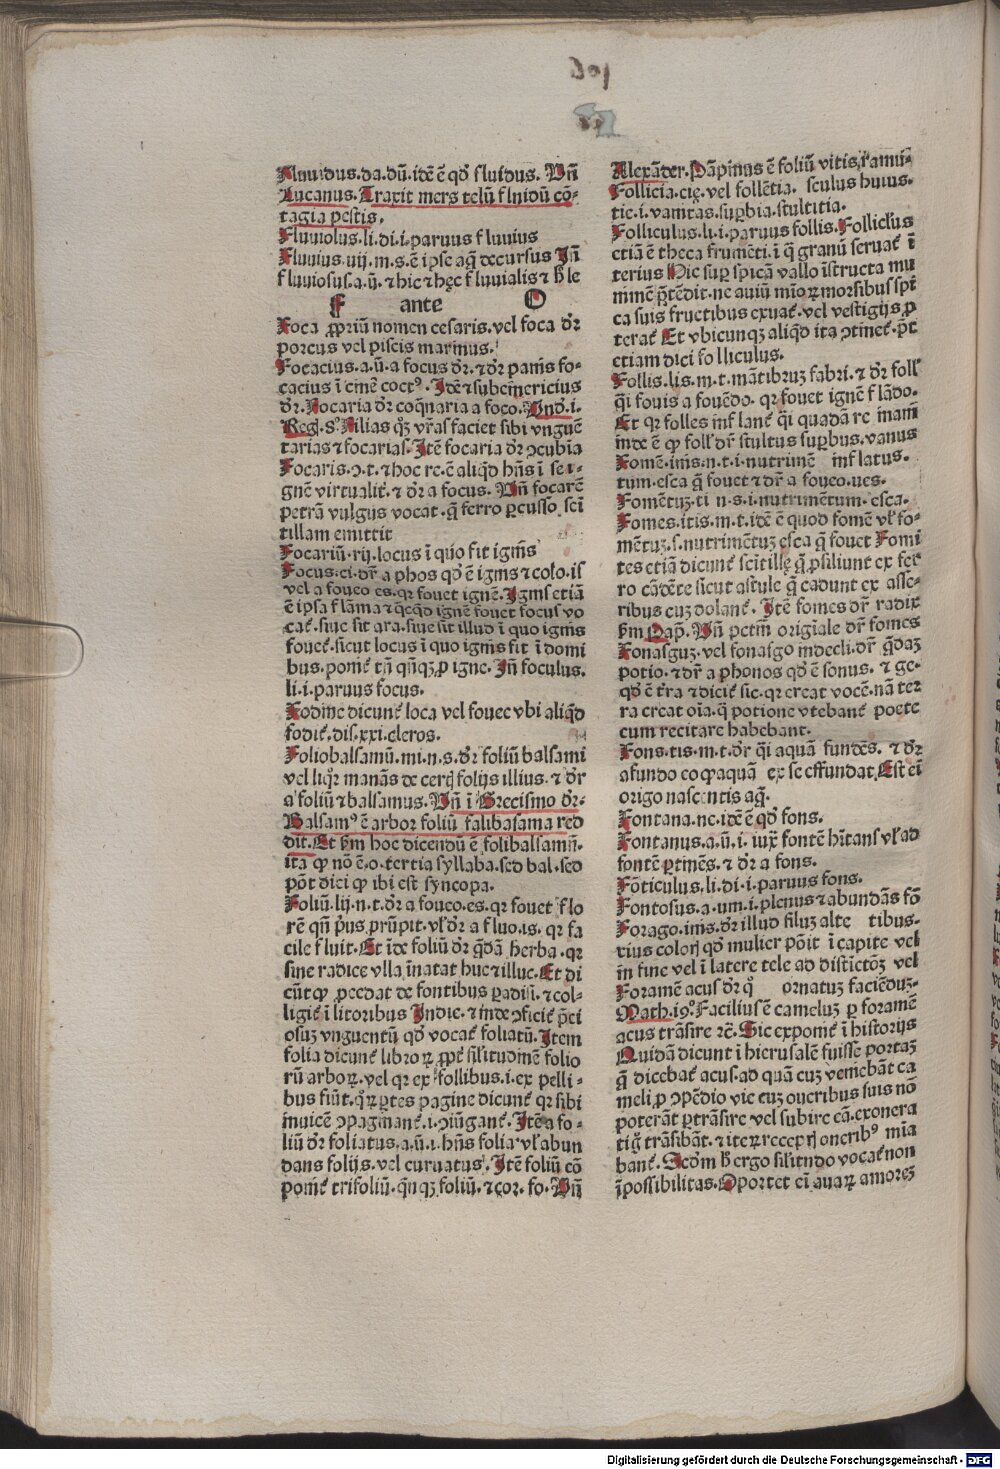 Fluuidus.da.dū.idē ē qđ fluidus. Vñ
Lucanus.Traxit mers telū fluidū cō-
tagia pestis.
Fluuiolus.li.di.i.paruus fluuius
Fluuius.uij.m.s.ē ipse aqꝫ decursus Iñ
fluuiosus.a.ū.⁊ hic ⁊ hęc fluuialis ⁊ h̄ le
F ante O
Foca ꝓpriū nomen cesaris.vel foca dr̄
porcus vel piscis marinus.
Focacius.a.ū.a focus dr̄.⁊ dr̄ panis fo-
cacius ī cinē coctꝰ.Idē ⁊ subcinericius
dr̄.Focaria dr̄ coq̄naria a foco.Vnd̄.i.
Reg.8.Filias qꝫ vr̄as faciet sibi vnguē
tarias ⁊ focarias.Itē focaria dr̄ ↄcubia
Focaris.ↄ.t.⁊ hoc re.ē aliq̄d hn̄s ī se i-
gnē virtualit̄.⁊ dr̄ a focus. Vñ focarē
petrā vulgus vocat.q̄ ferro ꝑcusso sci
tillam emittit
Focariū.rij.locus ī quo fit ignis
Focus.ci.dr̄ a phos qđ ē ignis ⁊ colo.is
vel a foueo es.qr fouet ignē.Ignis etiā
ē ipsa flāma ⁊ qcqd ignē fouet focus vo
cat̄.siue sit ara.siue sit illud ī quo ignis
fouet̄.sicut locus ī quo ignis fit ī domi
bus.ponit̄ tn̄ qn̄qꝫ ꝓ igne.Iñ foculus.
li.i.paruus focus.
Fodine dicunt̄ loca vel fouee vbi aliq̄d
fodit̄.dis.xxi.cleros.
Foliobalsamū.mi.n.s.dr̄ foliū balsami
vel liqr̄ manās de cerij folijs illius.⁊ dr̄
a foliū ⁊ balsamus.Vñ ī Grecismo dr̄.
Balsamꝰ ē arbor foliū falibasama red
dit.Et s̄m hoc dicendū ē folibalsamū.
ita ꝙ nō ē.o.tertia syllaba.sed bal.sed
pōt dici ꝙ ibi est syncopa.
Foliū.lij.n.t.dr̄ a foueo.es.qr fouet flo
rē qn̄ pͥus prūpit.vl dr̄ a fluo.is.qr fa
cile fluit.Et īde foliū dr̄ q̄dā herba.qr
sine radice vlla īnatat huc ⁊ illuc.Et di
cūt ꝙ ꝓcedat de fontibus padisi.⁊ col-
ligit̄ ī litoribus Indie.⁊ inde ↄficit̄ p̄ci
osuꝫ vnguentū qđ vocat̄ foliatū.Item
folia dicunt̄ libroꝝ ꝓpt̄ silitudinē folio
rū arboꝝ.vel qr ex follibus.i.ex pelli-
bus fiūt.qͦꝝ ꝑtes pagine dicunt̄ qr sibi
inuicē ↄpaginant̄.i.ↄiūgant̄.Itē a fo-
liū dr̄ foliatus.a.ū.i.hn̄s folia vl̄ abun
dans folijs.vel curuatus.Itē foliū cō
ponit̄ trifoliū.qn̄qꝫ foliū.⁊ cor.fo.Vñ
Alexāder.Pāpinus ē foliū vitis,rami-
Follicia.cię.vel follētia. sculus huius.
tie.i.vanitas.suꝑbia.stultitia.
Folliculus.li.i.paruus follis.Follicl̓us
etiā ē theca frumēti.ī q̄ granū seruat̄ ī
terius Hic suꝑ spicā vallo īstructa mu
nimē p̄tēdit.ne auiū mīoꝝ morsibus spi
ca suis fructibus exuat̄.vel vestigijs ꝓ
terat̄ Et vbicunqꝫ aliq̄d ita ↄtinet̄.pt̄
etiam dici folliculus.
Follis.lis.m.t.mātibruꝫ fabri.⁊ dr̄ foll'
q̄i fouis a fouēdo.qr fouet ignē flādo.
Et qr folles inflant̄ q̄i quadā re inani
inde ē ꝙ foll' dr̄ stultus suꝑbus.vanus
Fomē.inis.n.t.i.nutrimē inflatus.
tum.esca q̄ fouet ⁊ dr̄ a foueo.ues.
Fomētuꝫ.ti n.s.i.nutrimētum.esca.
Fomes.itis.m.t.idē ē quod fomē vl̄ fo-
mētuꝫ.s.nutrimētuꝫ esca q̄ fouet Fomi
tes etiā dicunt̄ scītillę q̄ ꝓsiliunt ex fer
ro cādēte sicut astule q̄ cadunt ex asse-
ribus cuꝫ dolant̄. Itē fomes dr̄ radix
s̄m Pap̄. Vñ petm̄ originale dr̄ fomes
Fonasguꝫ.vel fonasgo indecli.dr̄ q̄daꝫ
potio.⁊ dr̄ a phonos qđ ē sonus. ⁊ ge.
qđ ē tr̄a ⁊ dicit̄ sic.qr creat vocē.nā ter
ra creat oīa.q̄ potione vtebant̄ poete
cum recitare habebant.
Fons.tis.m.t.dr̄ q̄i aquā fundēs. ⁊ dr̄
afundo eo ꝙ aquā ex se effundat.Est eī
origo nascentis aqꝫ.
Fontana.ne.idē ē qđ fons.
Fontanus.a.ū.i. iuxͣ fontē hītans vl̄ ad
fontē ꝑtinēs.⁊ dr̄ a fons.
Fōticulus.li.di.i.paruus fons.
Fontosus.a.um.i.plenus ⁊ abundās fō
Forago.inis.dr̄ illud filuꝫ alte tibus.
rius colorꝭ qđ mulier pōit ī capite vel
in fine vel ī latere tele ad distīctōꝫ vel
Foramē acus dr̄ qͦ ornatuꝫ faciēduꝫ.
Math.19.Faciliusē cameluꝫ ꝑ foramē
acus trāsire rē.Sic exponit̄ ī historijs
Quidā dicunt ī hierusalē fuisse portaꝫ
q̄ dicebat̄ acus.ad quā cuꝫ veniebāt ca
meli ꝓ ↄpēdio vie cuꝫ oneribus suis nō
poterāt ꝑtrāsire vel subire eā.exonera
ti qꝫ trāsibāt.⁊ iteꝝ receptꝭ oneribꝰ mīa
bant̄.Scd̄m h̄ ergo silitudo vocat̄ non
īpossibilitas.Oportet eī auaꝝ amoreꝫ
Digitalisierung gefördert durch die Deutsche Forschungsgemeinschaft - DFG